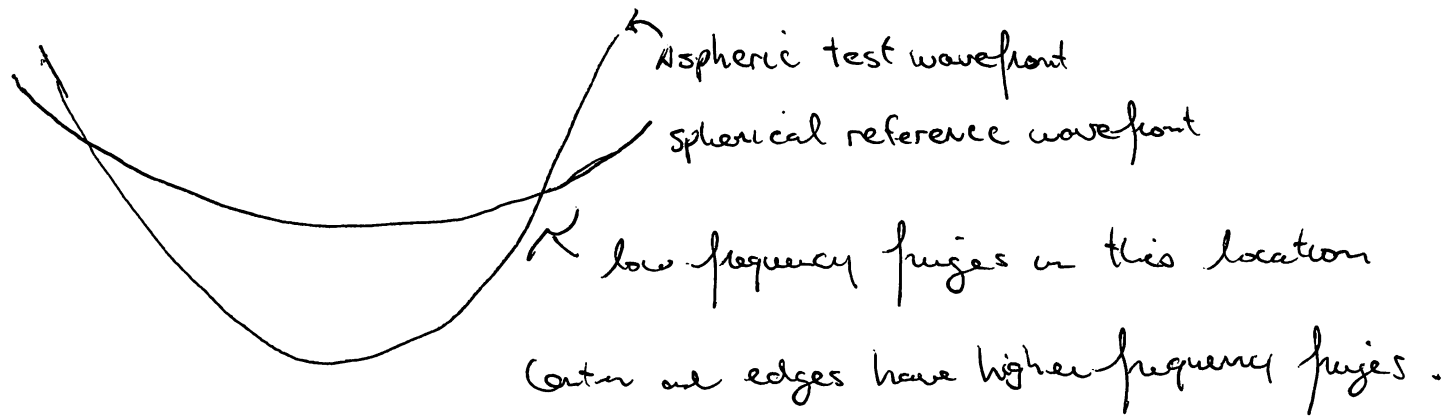 Aspheric test wavefront
spherical reference wavefront
low frequency fringes in this location
Center and edges have higher frequency fringes.